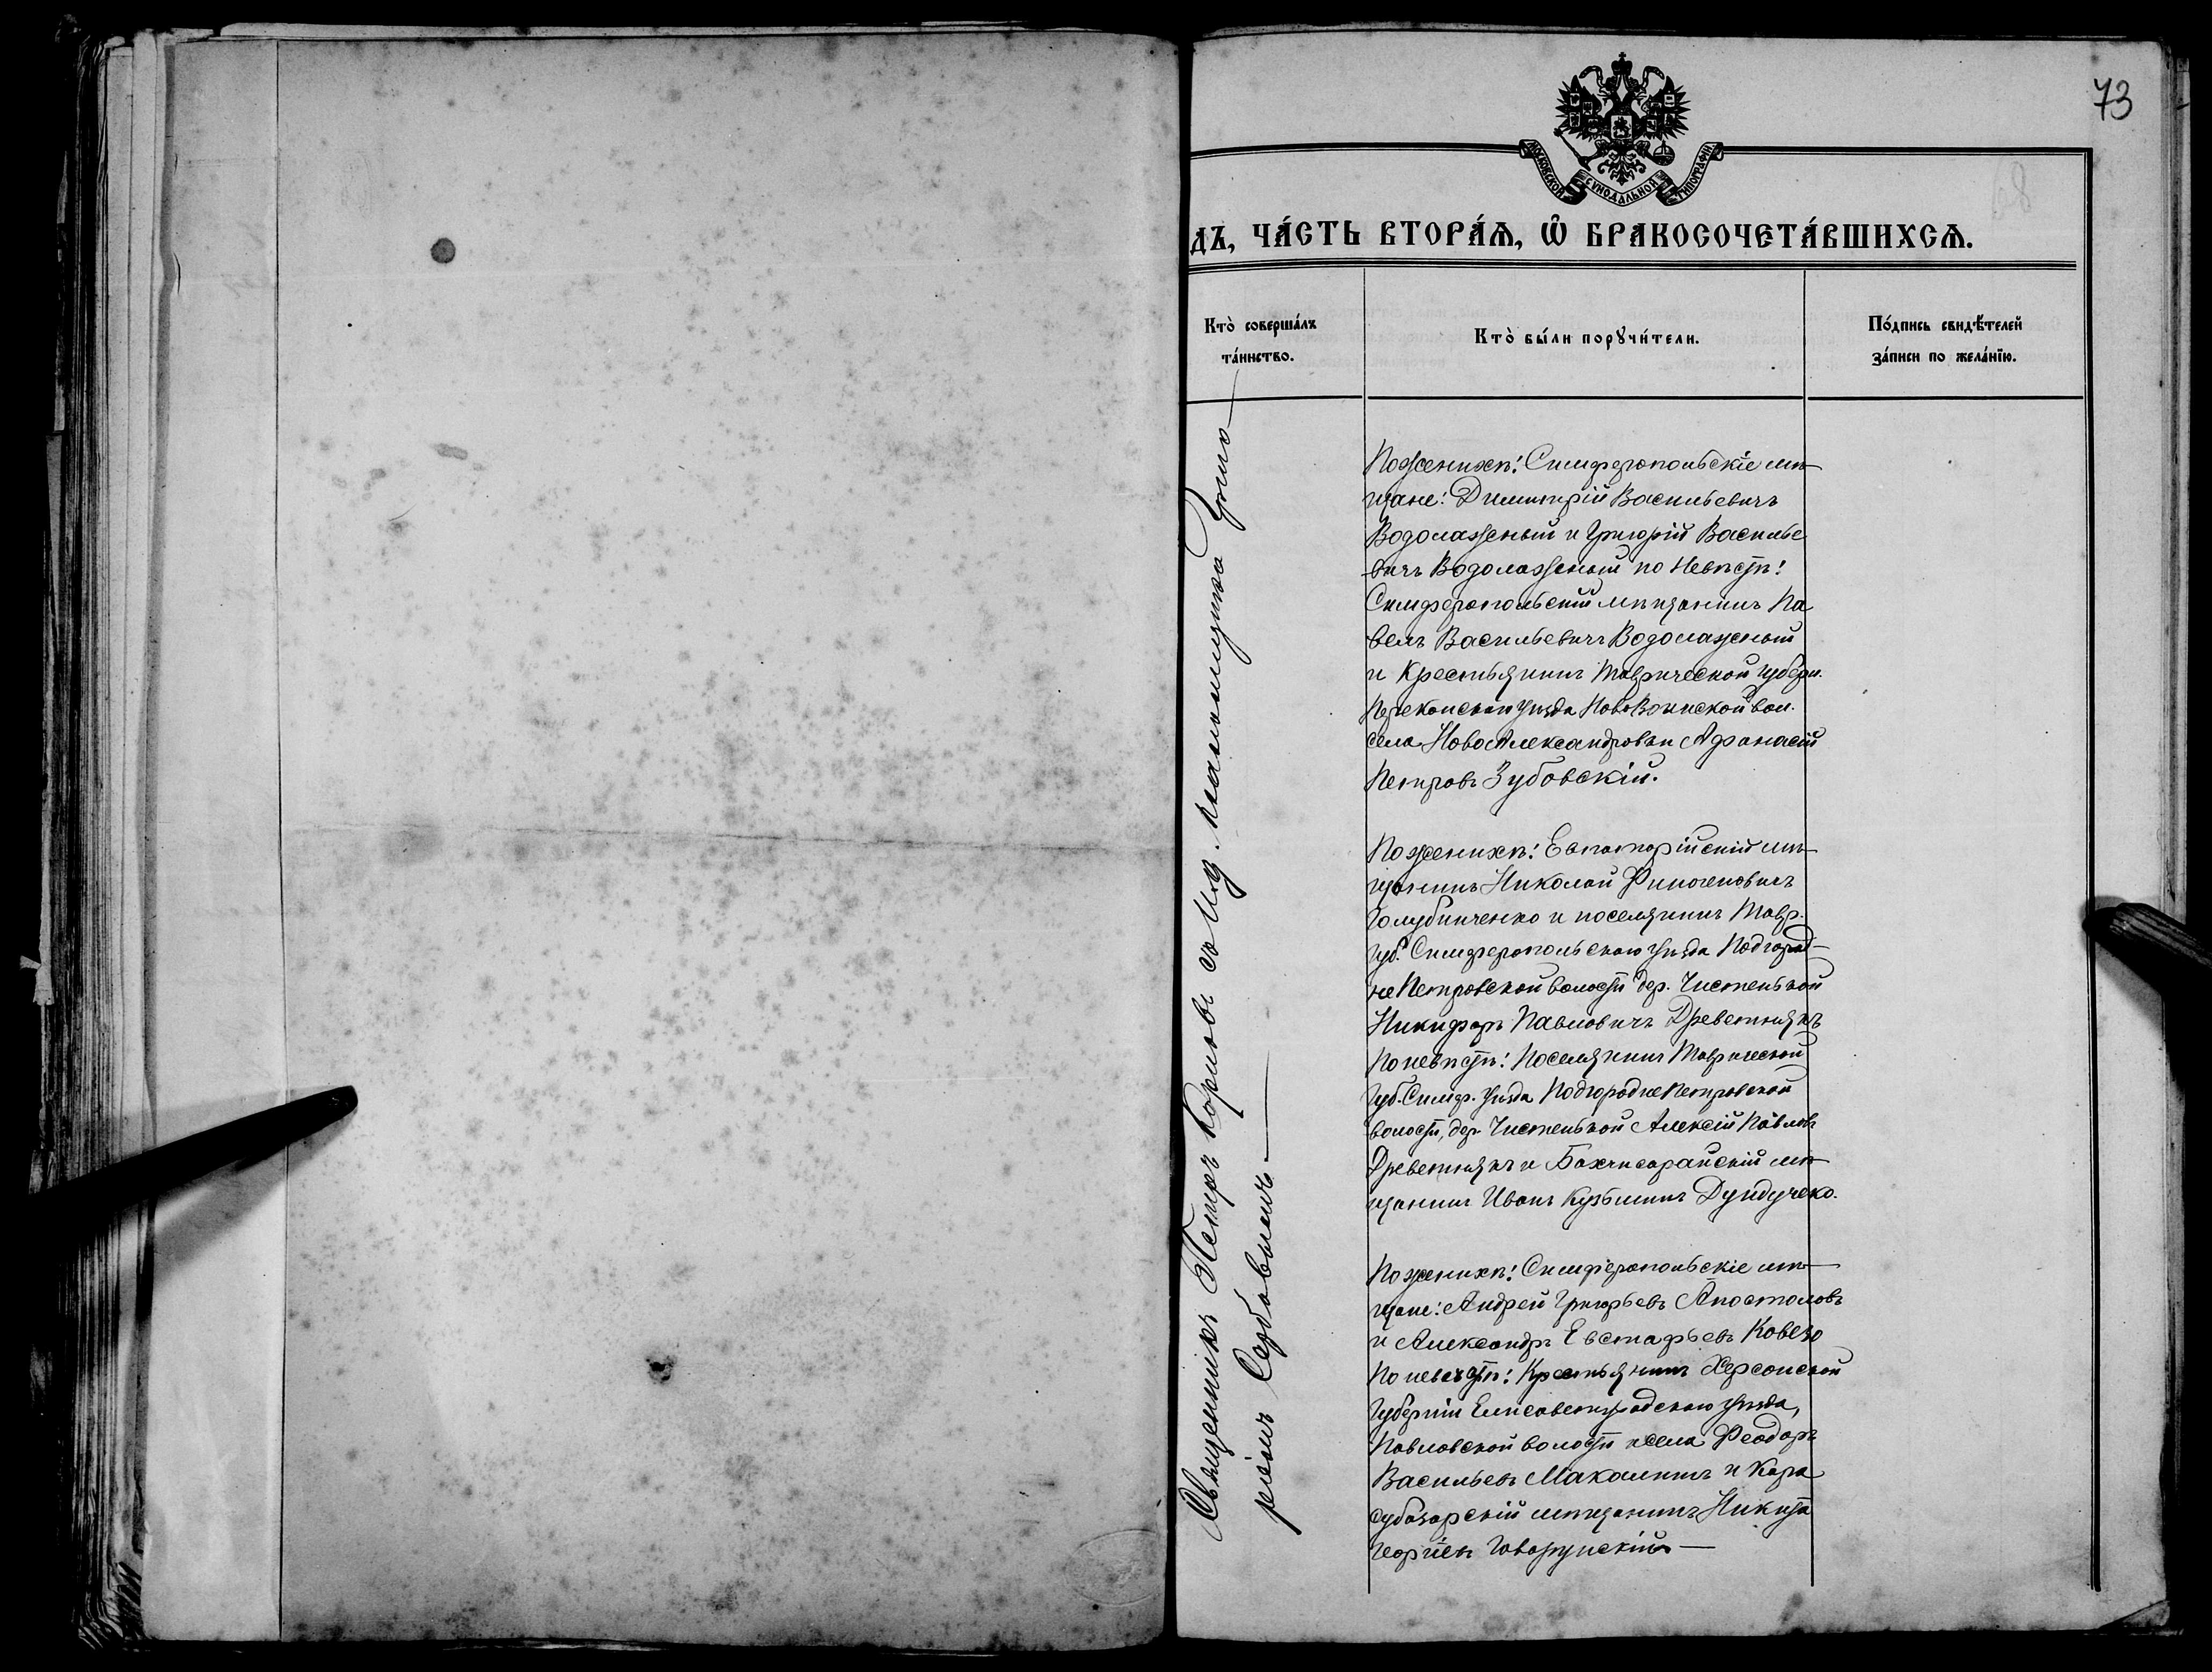 73
МОСКОВСКОЙ СѴНОДАЛЬНОЙ ТИПОГРАФІИ
ДЪ, ЧА́СТЬ ВТОРА́Ѧ, Ѡ҆ БРАКОСОЧЕТА́ВШИХСѦ.
Кто̀ соверша́лъ
та́инство.
Кто̀ бы́ли порꙋчи́тели.
По́дпись свидѣ́телей
за́писи по жела́нїю.
Священникъ Петръ Корниовъ со псаломщикомъ Григо-
ріемъ Сербовымъ
По женихѣ: Симферопольскіе мѣ-
щане: Димитрій Васильевичъ
Водолаженый и Григорій Василье
вичъ Водолаженый по Невѣстѣ:
Симферопольскій мѣщанинъ Па
велъ Васильевичъ Водолаженый
и Крестьянинъ Таврической губерн.
Перекопскаго уѣзда НовоВоинской вол.
села НовоАлександровки Афанасій
Петровъ Зубовскій.
По женихѣ: Евпаторійскій мѣ-
щанинъ Николай Финогеновичъ
Голубинченко и поселянинъ Тавр.
губ. Симферопольскаго уѣзда Подгород-
не Петровской волости дер. Чистенькой
Никифоръ Павловичъ Древетнякъ
По невѣстѣ: Поселянинъ Таврической
Губ. Симф. уѣзда ПодгороднеПетровской
волости, дер. Чистенькой Алексій Павловъ
Древетнякъ и Бахчисарайскій мѣ-
щанинъ Иванъ Кузьминъ Дундучеко.
По женихѣ: Симферопольскіе мѣ-
щане: Андрей Григорьевъ Апостоловъ
и Александръ Евстафьевъ Ковезо
По невѣстѣ: Крестьянинъ Херсонской
Губерніи Елисаветградскаго уѣзда,
Павловской волости и села Феодоръ
Васильевъ Макалинъ и Кара
субазарскій мѣщанинъ Никита
Георгіевъ Говорунскій